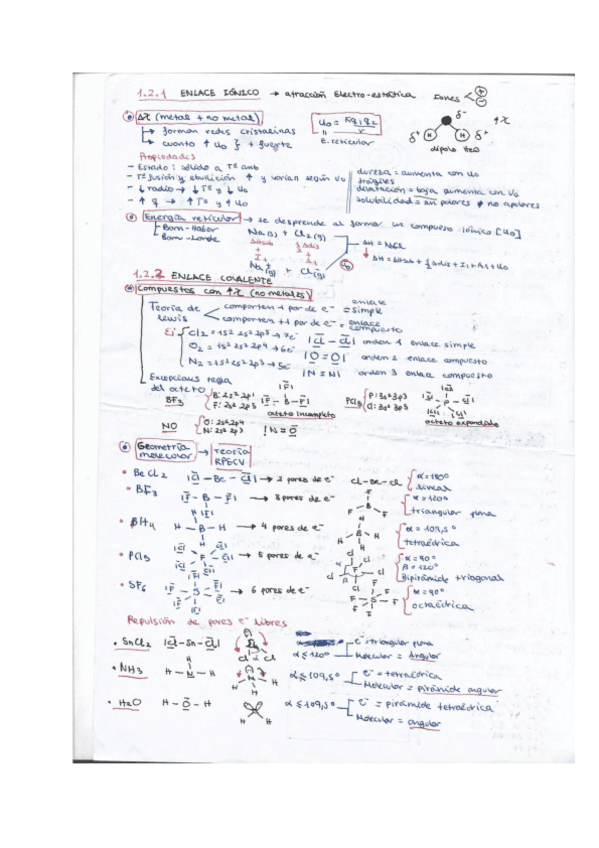 1.2.1 ENLACE IÓNICO → atracción Electro-estática Iones + -
Δχ (metal + no metal) U₀ = Kq₁q₂ / r δ⁻ ↑χ
→ forman redes cristalinas E. reticular δ⁺ H H δ⁺
→ cuanto ↑ U₀ + fuerte dipolo H₂O
Propiedades
- Estado: sólido a Tª amb dureza = aumenta con U₀
- Tª fusión y ebullición ↑ y varían según U₀ frágiles
- ↓ radio → ↓ Tª y ↓ U₀ dilatación = baja aumenta con U₀
- ↑ q → ↑ Tª y ↑ U₀ solubilidad = en polares no apolares
Energía reticular → se desprende al formar un compuesto iónico [U₀]
Born-Haber Na(s) + Cl₂(g)
Born-Lande ΔHsub ½ Δdis ΔH = NaCl
+ I₁ + A₁ ΔH = ΔHsub + ½ Δdis + I₁ + A₁ + U₀
Na⁺(g) + Cl⁻(g) U₀
1.2.2 ENLACE COVALENTE
Compuestos con ↑χ (no metales)
Teoría de Lewis comparten 1 par de e⁻ = enlace simple
comparten +1 par de e⁻ = enlace compuesto
Ej Cl₂ = 1s² 2s² 2p⁵ → 7e⁻ |Cl - Cl| orden 1 enlace simple
O₂ = 1s² 2s² 2p⁴ → 6e⁻ |O = O| orden 2 enlace compuesto
N₂ = 1s² 2s² 2p³ → 5e⁻ |N ≡ N| orden 3 enlace compuesto
Excepciones regla del octeto
BF₃ B: 2s² 2p¹ |F - B - F| PCl₅ P: 3s² 3p³
F: 2s² 2p⁵ octeto incompleto Cl: 3s² 3p⁵ octeto expandido
NO O: 2s² 2p⁴ |N = O
N: 2s² 2p³
Geometría molecular → Teoría RPECV
• BeCl₂ |Cl - Be - Cl| → 2 pares de e⁻ Cl-Be-Cl α = 180° lineal
• BF₃ |F - B - F| → 3 pares de e⁻ α = 120° triangular plana
• BH₄ H - B - H → 4 pares de e⁻ α = 109,5° tetraédrica
• PCl₅ → 5 pares de e⁻ α = 90° β = 120° Bipirámide triagonal
• SF₆ → 6 pares de e⁻ α = 90° octaédrica
Repulsión de pares e⁻ libres
• SnCl₂ |Cl - Sn - Cl| α ≤ 120° e⁻ = triangular plana
Molecular = Angular
• NH₃ H - N - H α ≤ 109,5° e⁻ = tetraédrica
Molecular = pirámide angular
• H₂O H - O - H α ≤ 109,5° e⁻ = pirámide tetraédrica
Molecular = angular